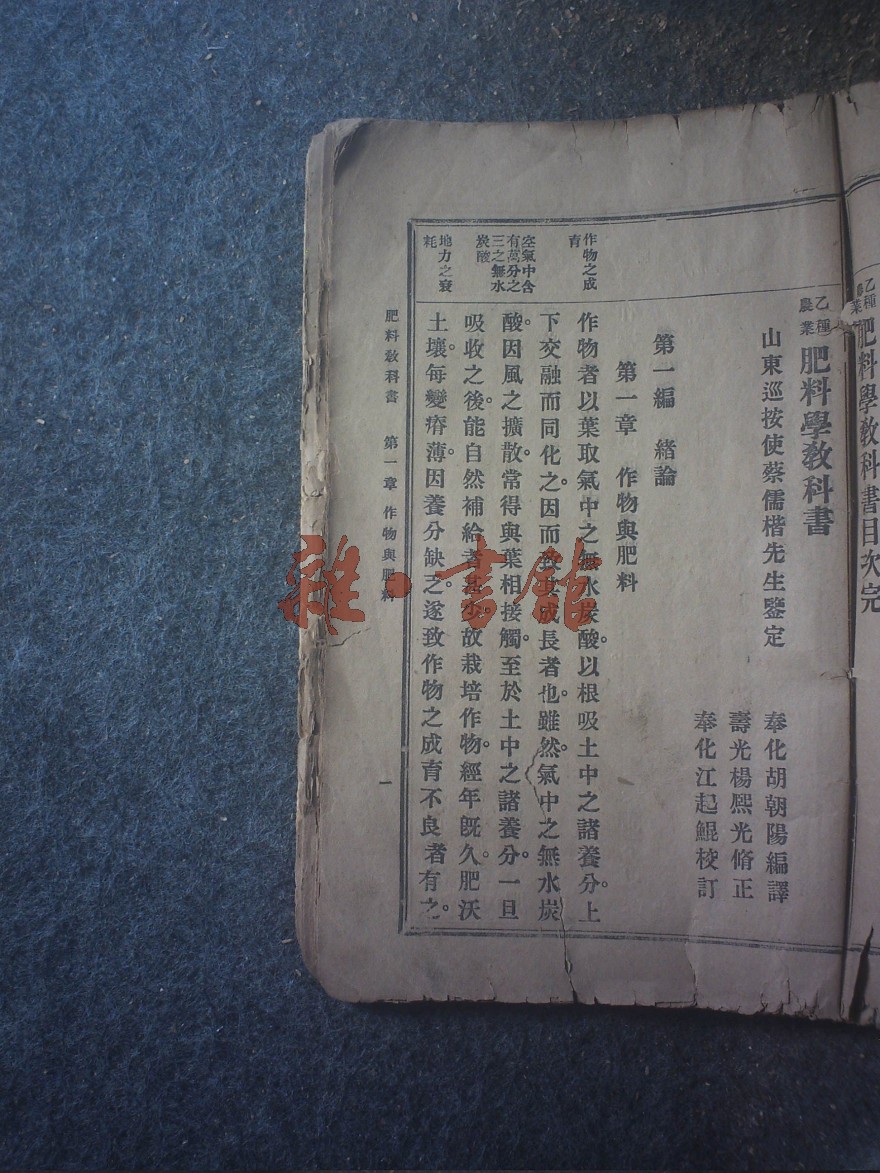 乙種農業肥料學教科書目次完
乙種農業肥料學教科書
山東巡按使蔡儒楷先生鑒定
奉化胡朝陽編譯
壽光楊熙光脩正
奉化江起鯤校訂
第一編　緒論
第一章　作物與肥料
作物之成育
作物者以葉取氣中之無水炭酸。以根吸土中之諸養分。上
下交融而同化之。因而致其成長者也。雖然。氣中之無水炭
空氣中含有萬分之三之無水炭酸
酸。因風之擴散。常得與葉相接觸。至於土中之諸養分。一旦
吸收之後。能自然補給者甚少。故栽培作物。經年旣久。肥沃
地力之衰耗
土壤。每變瘠薄。因養分缺乏。遂致作物之成育不良者有之。
肥料教科書　第一章　作物與肥料
一
雜·書館